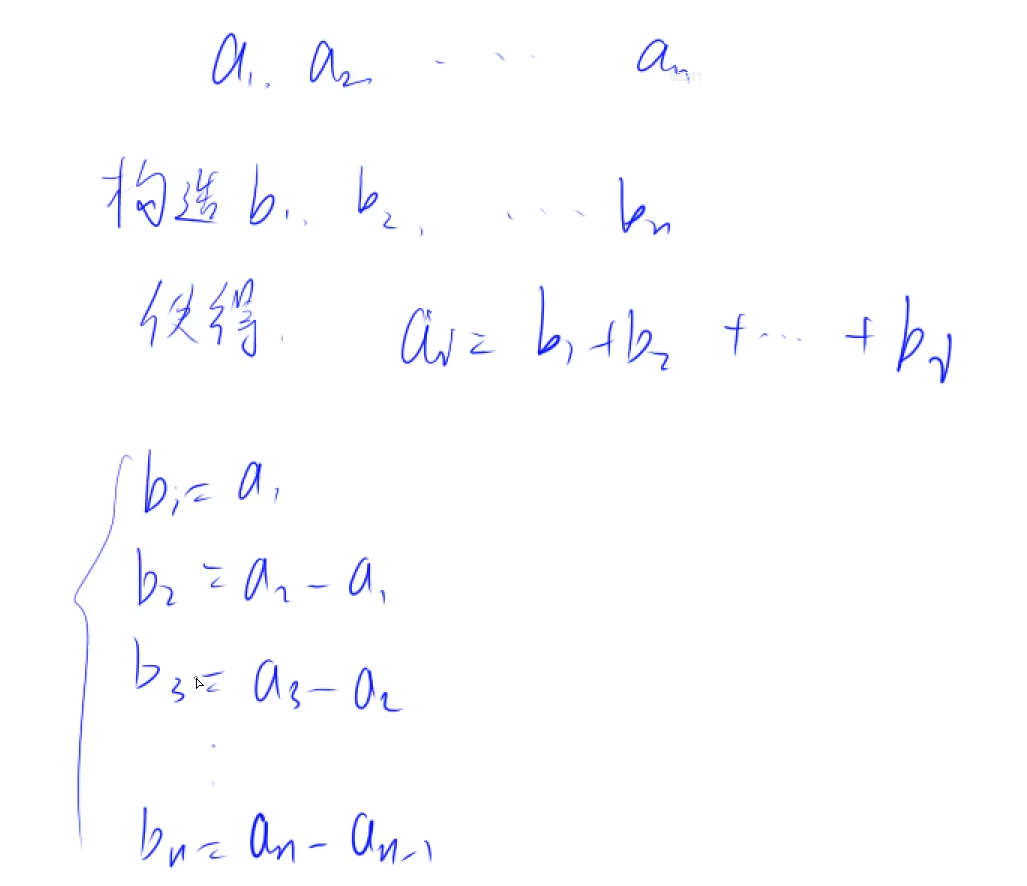 a₁, a₂ ‥‥ aₙ
构造 b₁, b₂, ‥‥ bₙ
使得. aᵢ = b₁ + b₂ + ‥‥ + bᵢ
b₁ = a₁
b₂ = a₂ - a₁
b₃ = a₃ - a₂
⋮
bₙ = aₙ - aₙ₋₁